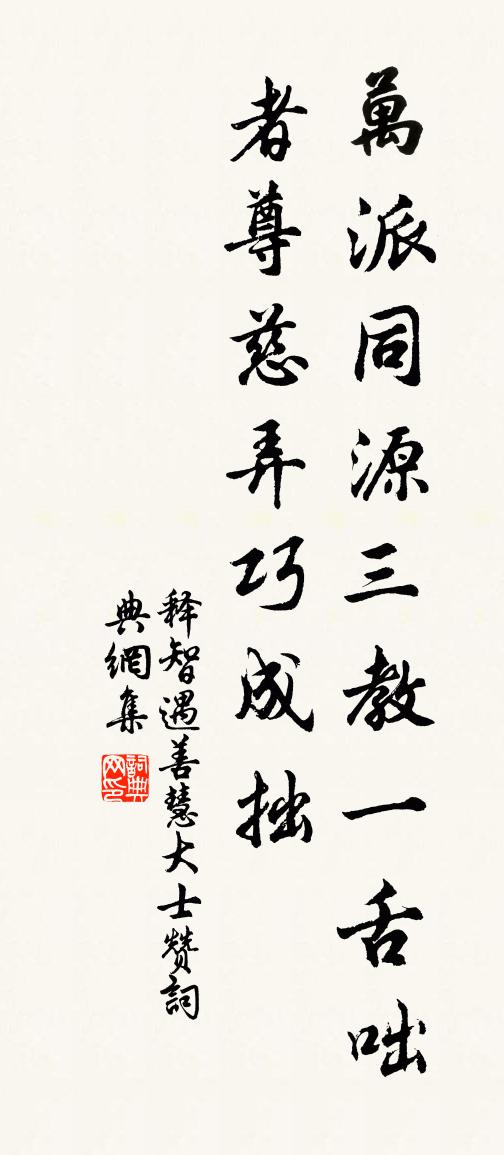 萬派同源三教一舌咄
者尊慈弄巧成拙
释智遇善慧大士赞詞
典網集
詞典
网印